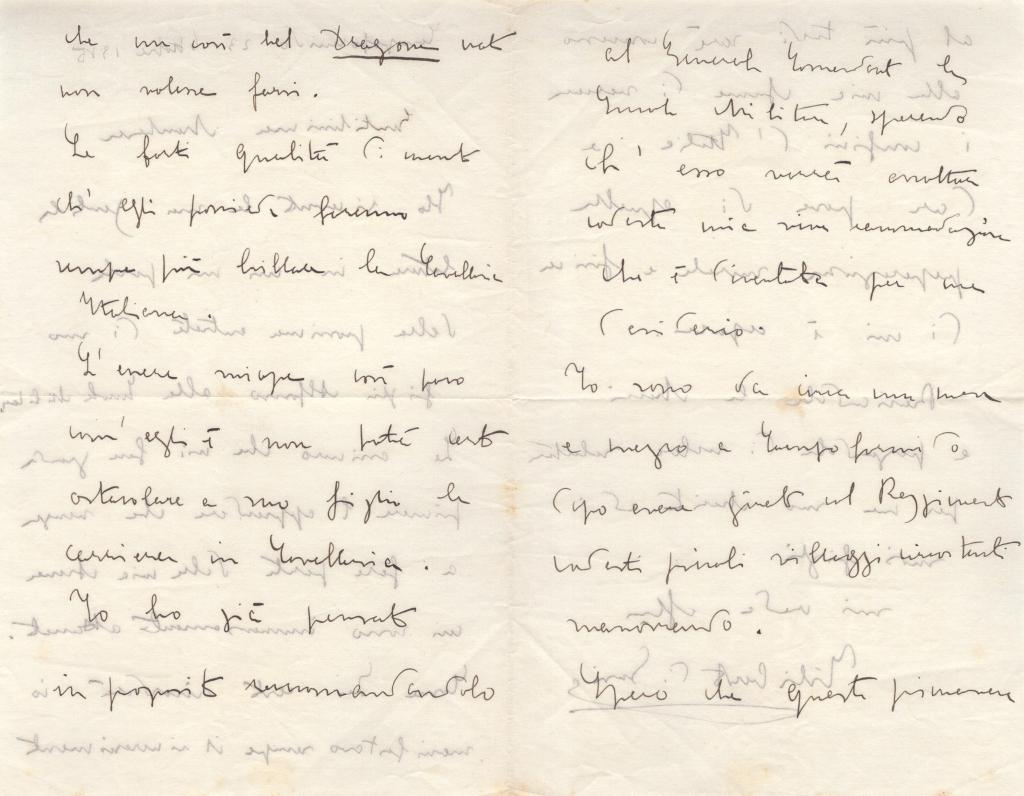 che un così bel Dragone nato
non volesse farsi.
Le forti qualità di mente
ch'egli possiede faranno
sempre più brillare la Cavalleria
Italiana.
L'essere miope così poco
com'egli è non potrà certo
ostacolare a suo figlio la
carriera in Cavalleria.
Io ho già pensato
in proposito raccomandandolo
al Generale Comandante la
Scuola Militare, sperando
ch'esso vorrà ascoltare
codesta mia viva raccomandazione
che è diventata per me
desiderio.
Io sono da circa un mese
e mezzo a Campoformido
dopo avere girato col Reggimento
codesti piccoli villaggi circostanti
manovrando.
Spero che questa primavera